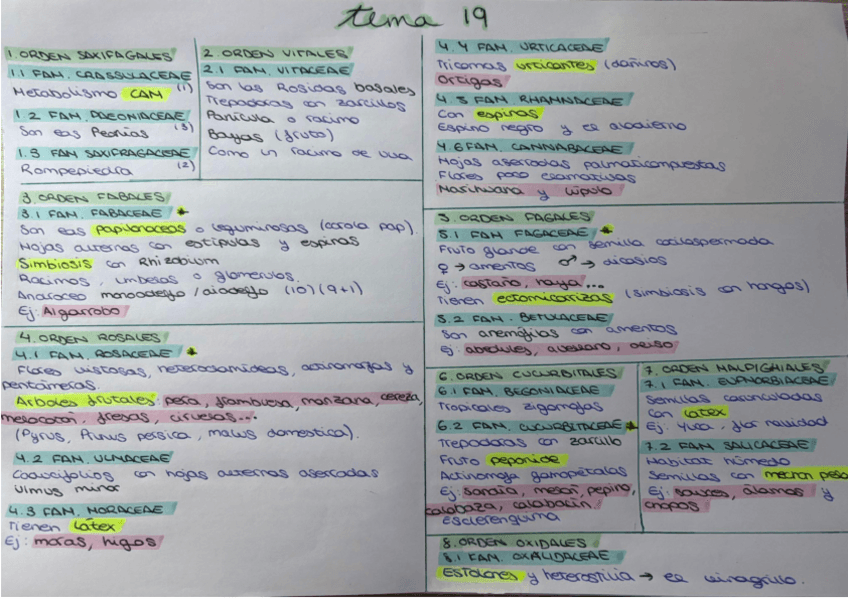 tema 19
1. ORDEN SAXIFAGALES
1.1 FAM. CRASSULACEAE
Metabolismo CAM (1)
1.2 FAM. PAEONIACEAE
Son las Peonias (3)
1.3 FAM SAXIFRAGACEAE
Rompepiedra (2)
2. ORDEN VITALES
2.1 FAM. VITACEAE
Son las Rosidas basales
Trepadoras con zarcillos
Panícula o racimo
Bayas (fruto)
Como un racimo de uva
3. ORDEN FABALES
3.1 FAM. FABACEAE
Son las papilonaceas o leguminosas (corola pap).
Hojas alternas con estípulas y espinas
Simbiosis con Rhizobium
Racimos, umbelas o glomerulos.
Androceo monadelfo / diadelfo (10) (9+1)
Ej: Algarrobo
4. ORDEN ROSALES
4.1 FAM. ROSACEAE
Flores vistosas, heteroclamideas, actinomorfas y
pentámeras.
Arboles frutales: pera, frambuesa, manzana, cereza,
melocotón, fresas, ciruelas...
(Pyrus, Prunus persica, malus domestica).
4.2 FAM. ULMACEAE
Caducifolios con hojas alternas aserradas
Ulmus minor
4.3 FAM. MORACEAE
Tienen látex
Ej: moras, higos
4.4 FAM. URTICACEAE
Tricomas urticantes (dañinos)
Ortigas
4.5 FAM. RHAMNACEAE
Con espinas
Espino negro y el aladierno
4.6 FAM. CANNABACEAE
Hojas aserradas palmaticompuestas
Flores poco llamativas
Marihuana y lúpulo
5. ORDEN FAGALES
5.1 FAM. FAGACEAE
Fruto glande con semilla
♀ → amentos ♂ → dicasios
Ej: castaño, haya...
Tienen ectomicorrizas (simbiosis con hongos)
5.2 FAM. BETULACEAE
Son anemófilas con amentos
Ej: abedules, avellano, aliso
6. ORDEN CUCURBITALES
6.1 FAM. BEGONIACEAE
Tropicales zigomorfas
6.2 FAM. CUCURBITACEAE
Trepadoras con zarcillo
Fruto peponide
Actinomorfa gamopétalas
Ej: sandía, melón, pepino,
calabaza, calabacín.
Esclerenquima
7. ORDEN MALPIGHIALES
7.1 FAM. EUPHORBIACEAE
Semillas carunculadas
con latex
Ej: Yuca, flor navidad
7.2 FAM. SALICACEAE
Habitat húmedo
Semillas con mechon pelo
Ej: sauces, álamos y
chopos
8. ORDEN OXIDALES
8.1 FAM. OXALIDACEAE
Estolones y heterostilia → el vinagrillo.